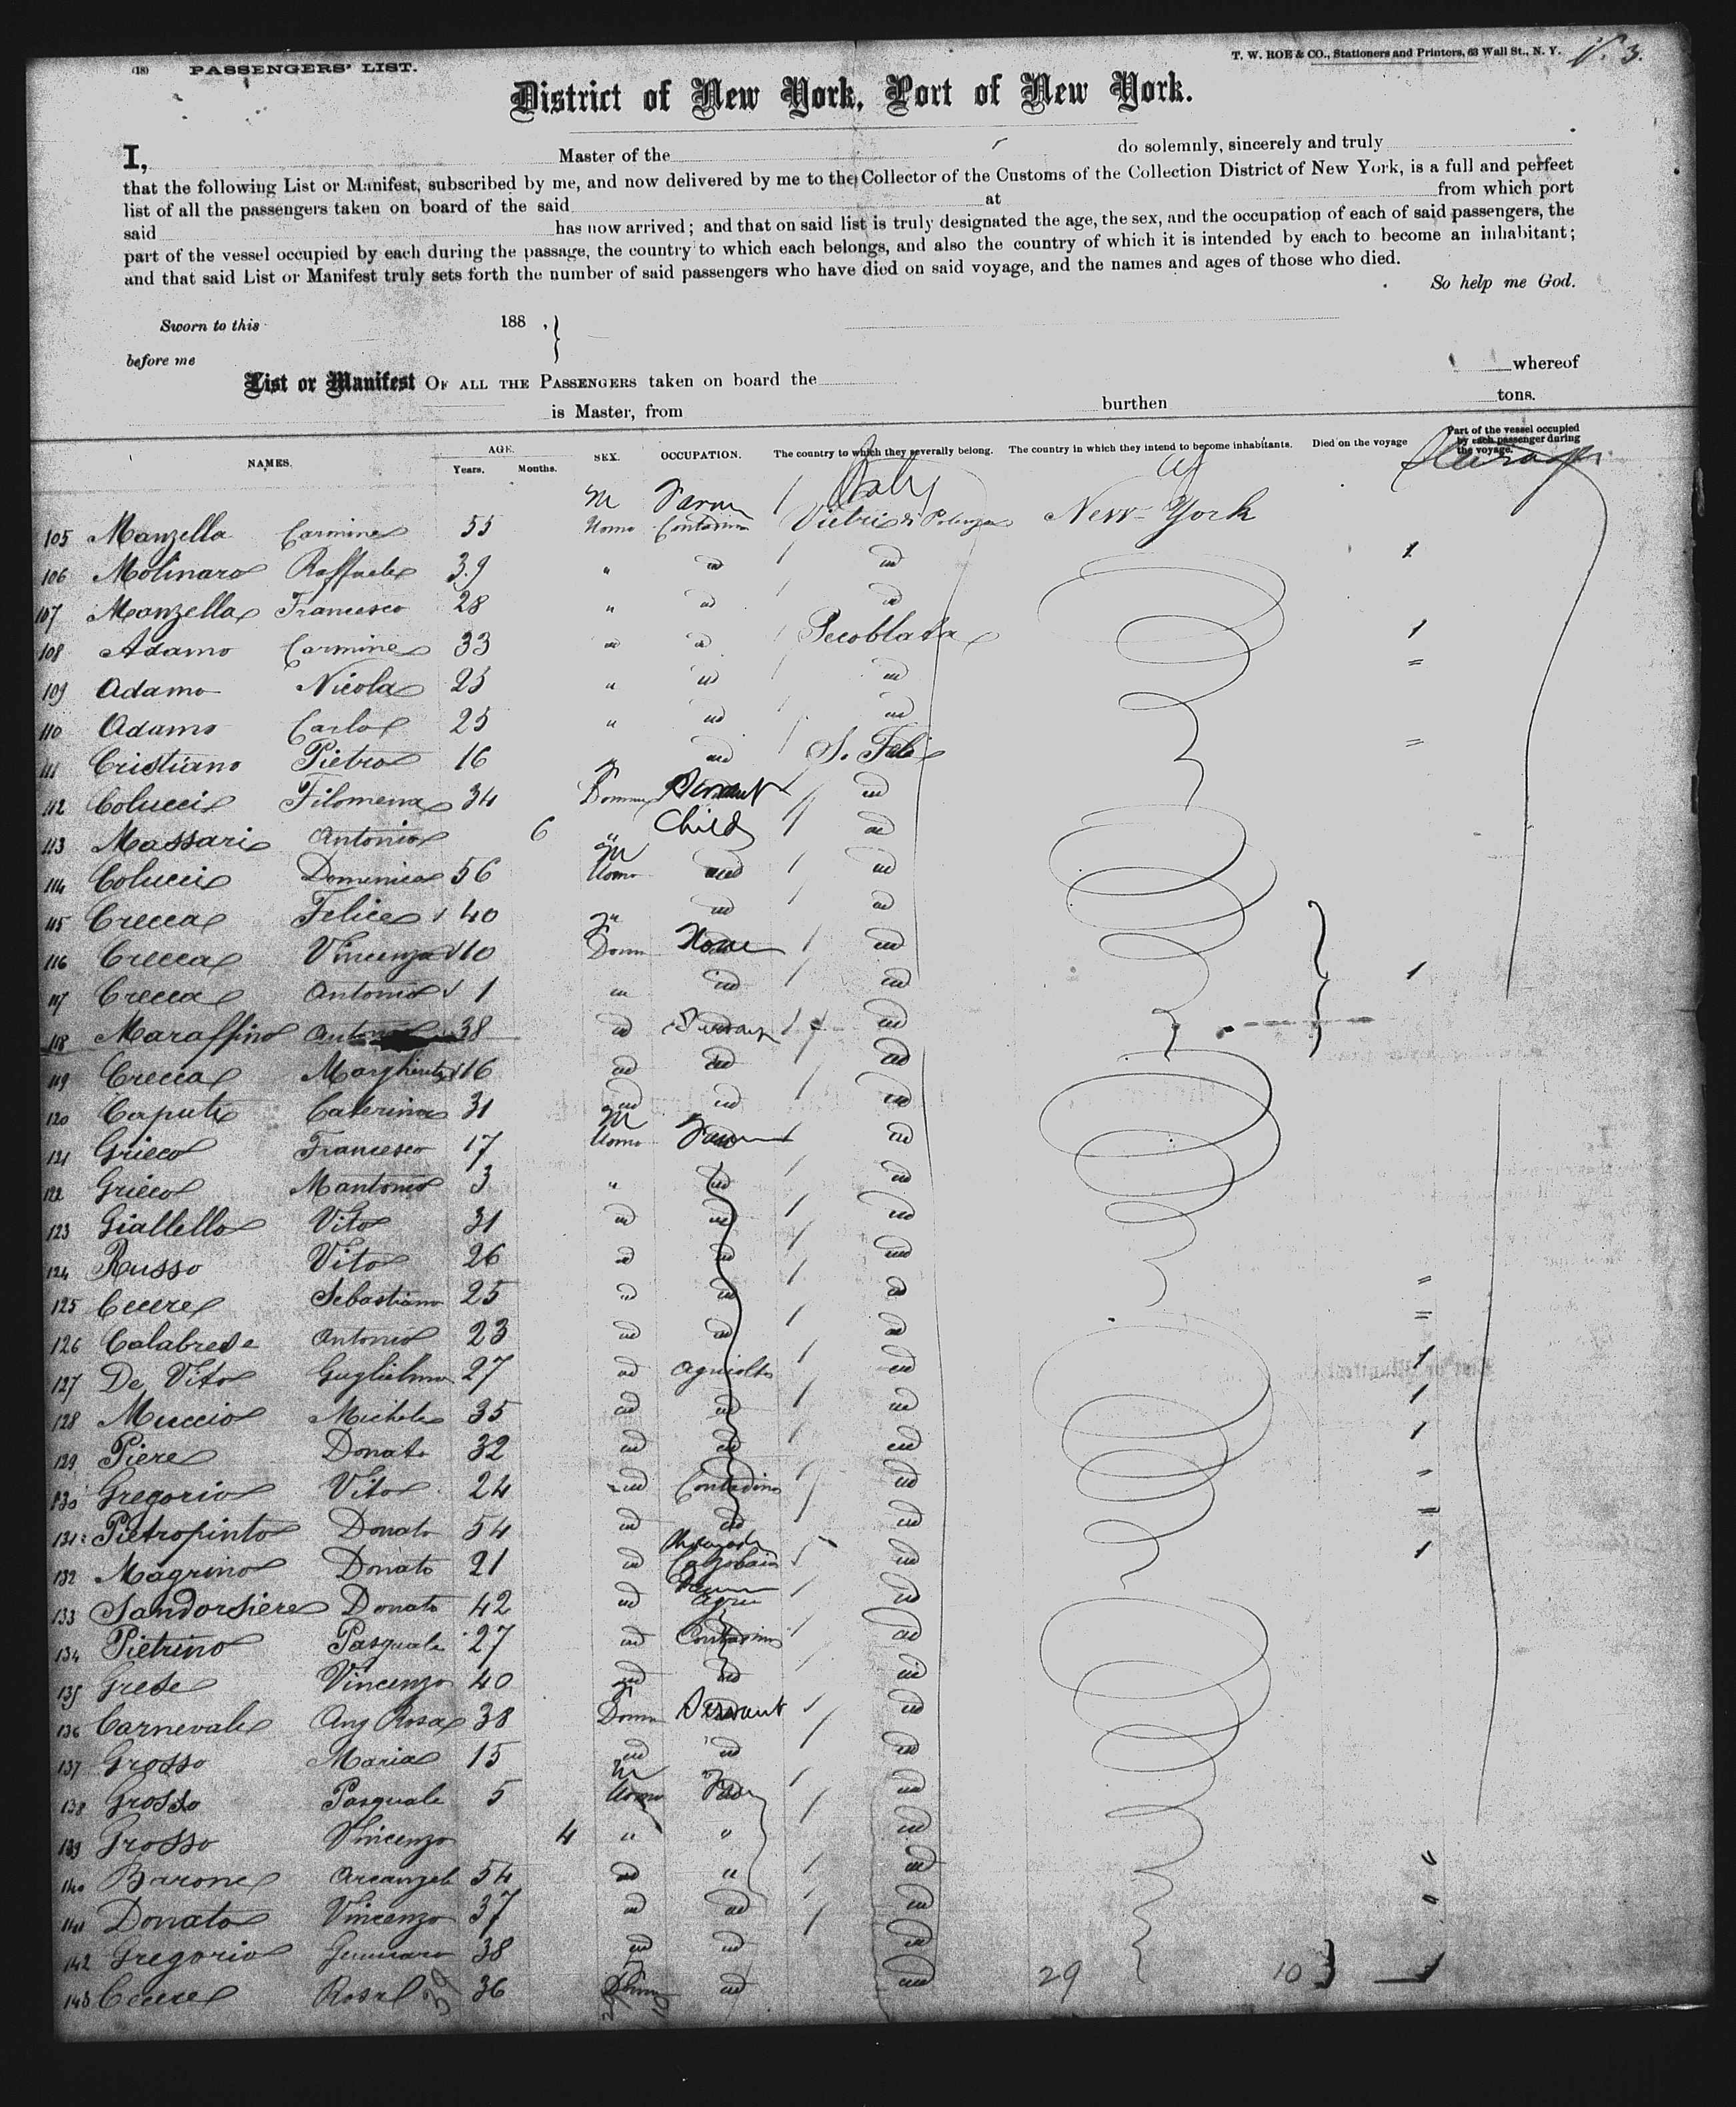 (18) PASSENGERS' LIST.
T. W. ROE & CO., Stationers and Printers, 63 Wall St., N. Y.
3.
District of New York, Port of New York.
I, Master of the do solemnly, sincerely and truly
that the following List or Manifest, subscribed by me, and now delivered by me to the Collector of the Customs of the Collection District of New York, is a full and perfect
list of all the passengers taken on board of the said at from which port
said has now arrived; and that on said list is truly designated the age, the sex, and the occupation of each of said passengers, the
part of the vessel occupied by each during the passage, the country to which each belongs, and also the country of which it is intended by each to become an inhabitant;
and that said List or Manifest truly sets forth the number of said passengers who have died on said voyage, and the names and ages of those who died.
So help me God.
Sworn to this 188 ,
before me
List or Manifest OF ALL THE PASSENGERS taken on board the whereof
is Master, from burthen tons.
NAMES. AGE. Years. Months. SEX. OCCUPATION. The country to which they severally belong. The country in which they intend to become inhabitants. Died on the voyage Part of the vessel occupied by each passenger during the voyage.
M Farm Italy Steerage
105 Manzella Carmine 55 Uomo Contadino Vietri di Potenza New-York
106 Molinaro Raffaele 39 " id id
107 Manzella Francesco 28 " id id
108 Adamo Carmine 33 id id
109 Adamo Nicola 25 " id id
110 Adamo Carlo 25 " id id
111 Cristiano Pietro 16 " id S. Fele
112 Colucci Filomena 34 Donna Servant id
113 Massari Antonio 6 " Child id
114 Colucci Domenico 56 M Uomo id id
115 Crecca Felice 40 " id id
116 Crecca Vincenza 10 Donn None id
117 Crecca Antonio 1 id id
118 Maraffino 38 id id
119 Crecca Margherita 16 id id id
120 Caputi Caterina 31 id id id
121 Grieco Francesco 17 M Uomo id
122 Grieco Mantonio 3 " id id
123 Giallello Vito 31 id id id
124 Russo Vito 26 id id id
125 Cecere Sebastiano 25 id id id
126 Calabrese Antonio 23 id id id
127 De Vito Guglielmo 27 id id
128 Muccio Michele 35 id id id
129 Piere Donato 32 id id id
130 Gregorio Vito 24 id Contadino id
131 Pietropinto Donato 54 id id id
132 Magrino Donato 21 id id
133 Sandorsiere Donato 42 id id
134 Pietrino Pasquale 27 id Contadino id
135 Grese Vincenzo 40 id id id
136 Carnevale Ang Rosa 38 Donna Servant id
137 Grosso Maria 15 id id id
138 Grosso Pasquale 5 M Uomo id
139 Grosso Vincenzo 4 " " id
140 Barone Arcangelo 54 id " id
141 Donato Vincenzo 37 id id id
142 Gregorio Gennaro 38 id id id
143 Cecere Rosa 36 id id 29 10